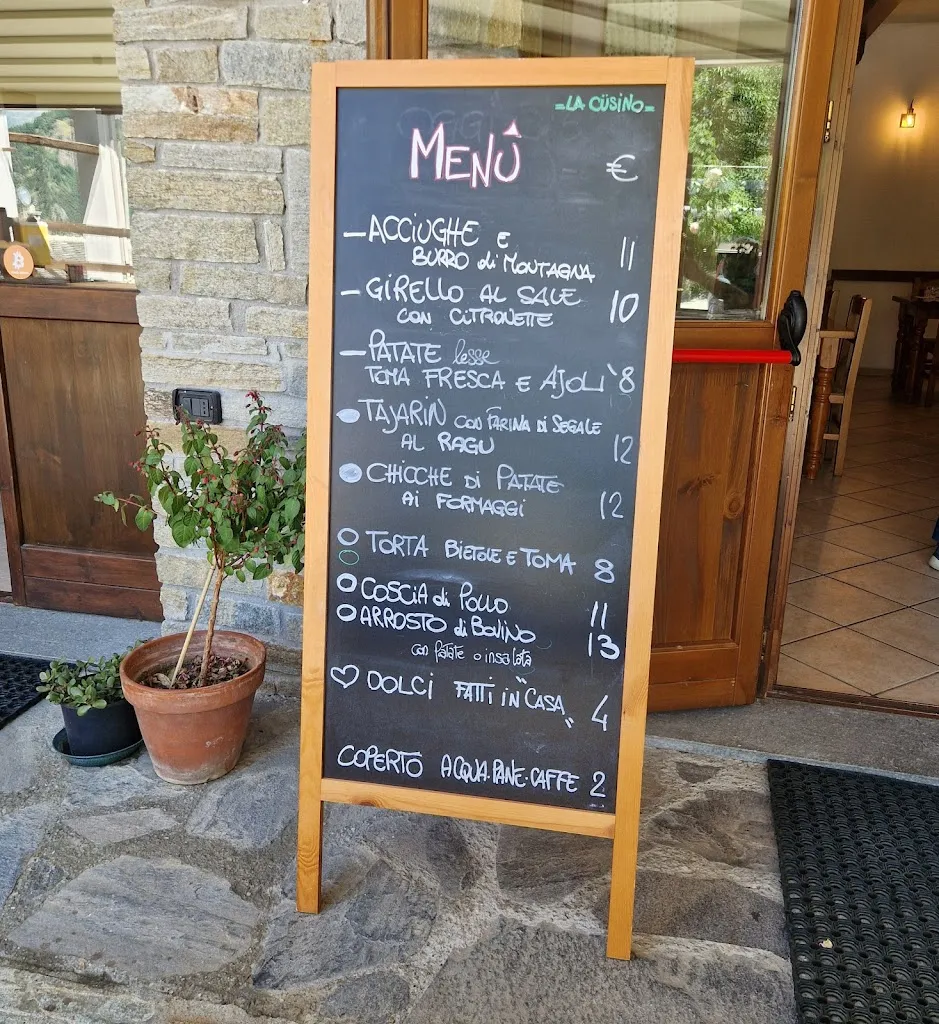 =LA CÜSINO=
MENÙ €
– ACCIUGHE E
BURRO di MONTAGNA 11
– GIRELLO AL SALE 10
CON CITRONETTE
– PATATE lesse
TOMA FRESCA E AJOLÌ 8
TAJARIN CON FARINA DI SEGALE
AL RAGU 12
CHICCHE DI PATATE
AI FORMAGGI 12
TORTA BIETOLE E TOMA 8
COSCIA di POLLO 11
ARROSTO di BOVINO 13
con patate o insalata
♡ DOLCI "FATTI IN CASA" 4
COPERTO ACQUA·PANE·CAFFE 2